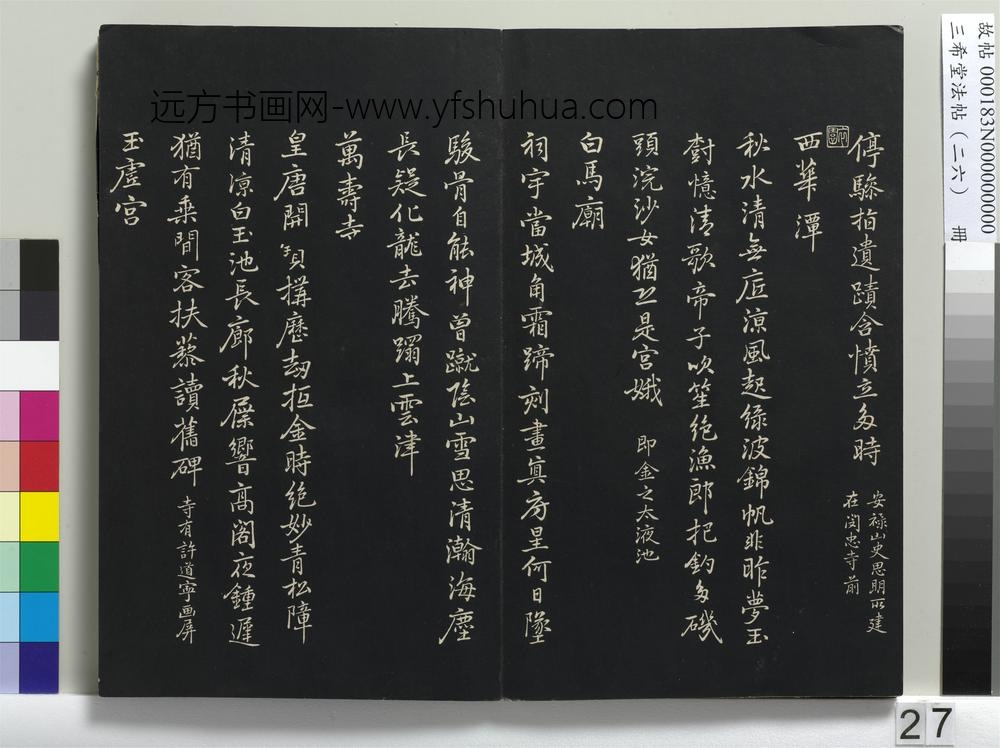 停驂拍遺蹟含憤立多時 安祿山史思明所建
在閔忠寺前
西華潭
秋水清無底涼風起綠波錦帆非昨夢玉
樹憶清歌帝子吹笙絕漁郎把釣多磯
頭浣沙女猶恐是宮娥 即金之太液池
白馬廟
祠宇當城角霜蹄刻畫真房星何日墜
駿骨自能神曾蹴陰山雪思清瀚海塵
長疑化龍去騰躍上雲津
萬壽寺
皇唐開寶搆歷劫抵金時絕妙青松障
清涼白玉池長廊秋屧響高閣夜鍾遲
猶有乘閒客扶藜讀舊碑 寺有許道寧画屏
玉虛宮
远方书画网-www.yfshuhua.com
故帖000183N000000000
三希堂法帖(二六) 冊
27